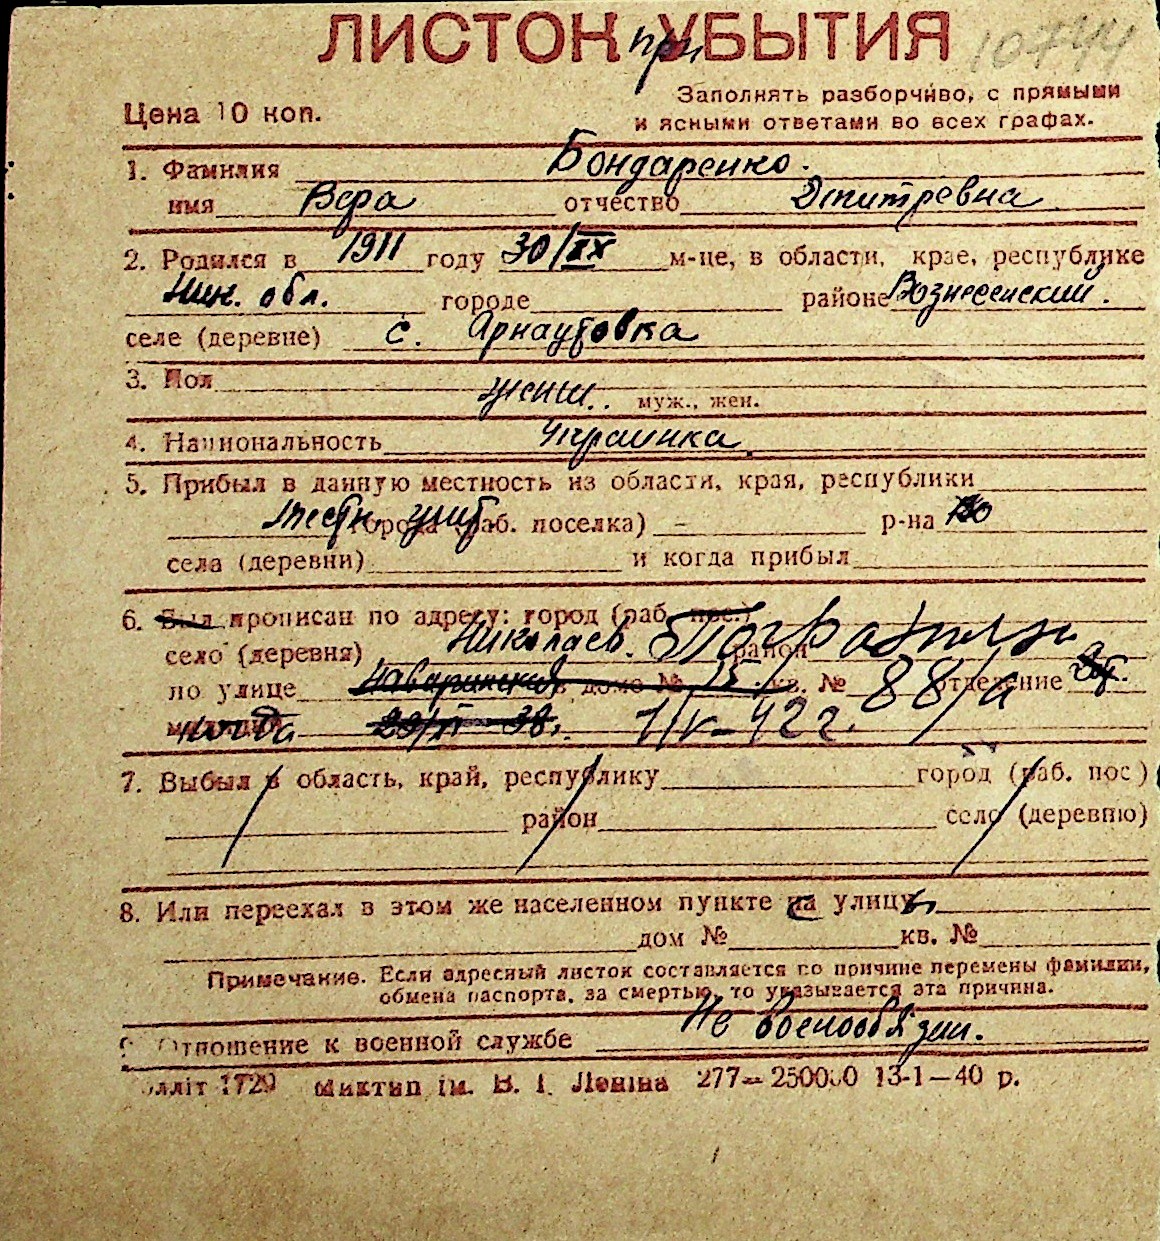 ЛИСТОК при УБЫТИЯ 10744
Цена 10 коп.
Заполнять разборчиво, с прямыми
и ясными ответами во всех графах.
1. Фамилия Бондаренко.
имя Вера отчество Дмитревна
2. Родился в 1911 году 30/IX м-це, в области, крае, республике
Ник. обл. городе районе Вознесенский.
селе (деревне) с. Арнаутовка
3. Пол женщ. муж., жен.
4. Национальность Украинка
5. Прибыл в данную местность из области, края, республики
Местн. жит. города (раб. поселка) – р-на
села (деревни) и когда прибыл
6. Был прописан по адресу: город (раб. пос.)
село (деревня) Николаев. район
по улице Наваринская в доме № 15 кв. № 88/а отделение
милиции когда 1/V-42 г.
7. Выбыл в область, край, республику город (раб. пос)
район село (деревню)
8. Или переехал в этом же населенном пункте на улицу
дом № кв. №
Примечание. Если адресный листок составляется по причине перемены фамилии,
обмена паспорта, за смертью, то указывается эта причина.
9. Отношение к военной службе Не военнообязан.
1729 Миктип ім. В. І. Леніна 277—250000 13-1—40 р.